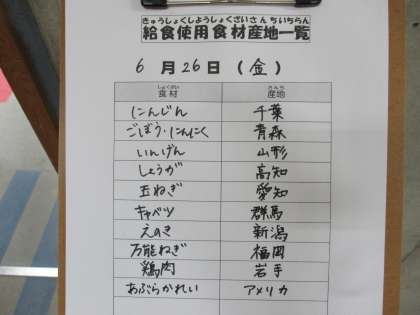 きゅうしょくしようしょくざいさんちいちらん
給食使用食材産地一覧
6月26日(金)
しょくざい さんち
食材 産地
にんじん 千葉
ごぼう・にんにく 青森
いんげん 山形
しょうが 高知
玉ねぎ 愛知
キャベツ 群馬
えのき 新潟
万能ねぎ 福岡
鶏肉 岩手
あぶらかれい アメリカ